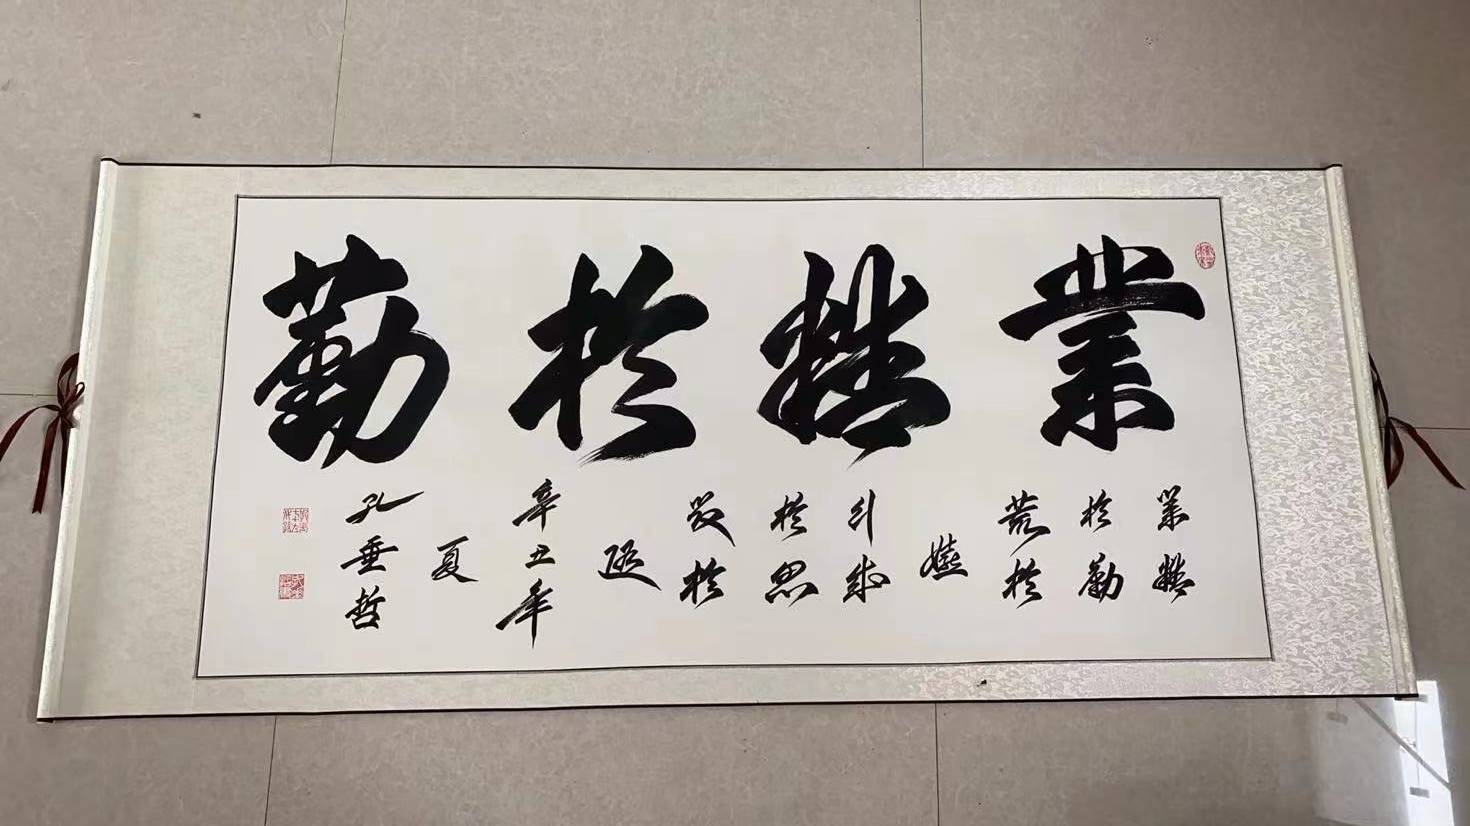 業精於勤
業精
於勤
荒於
嬉
行成
於思
毀於
隨
辛丑年
夏
孔垂哲